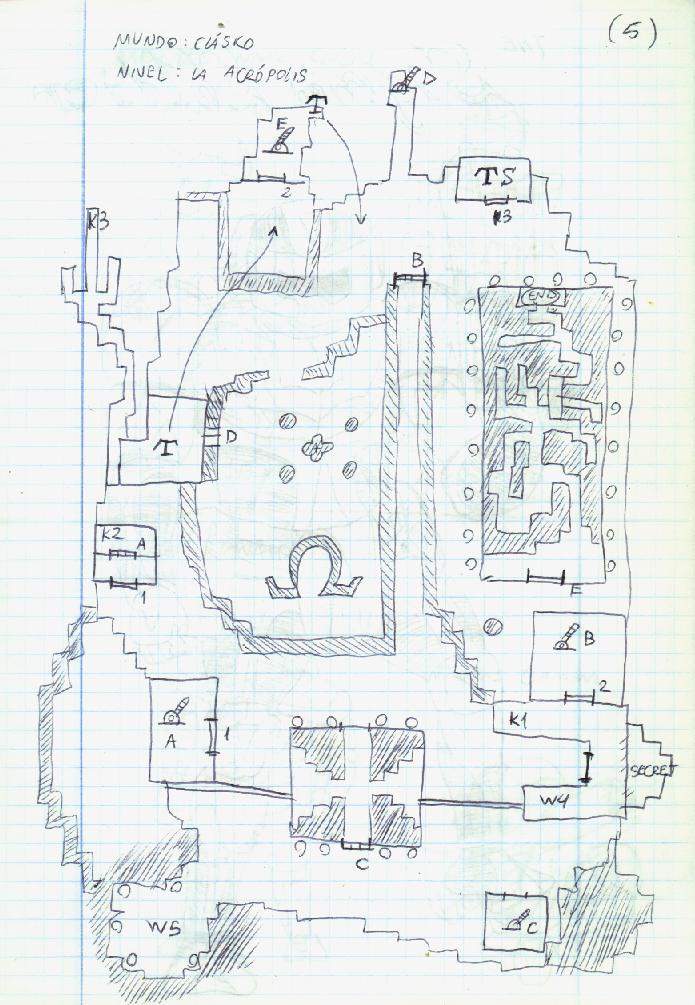 (5)
MUNDO: CLÁSKO
NIVEL: LA ACRÓPOLIS
D
T
E
2
TS
K3
K3
B
END
D
T
K2
A
1
E
B
2
A
1
K1
SECRET
W4
C
W5
C